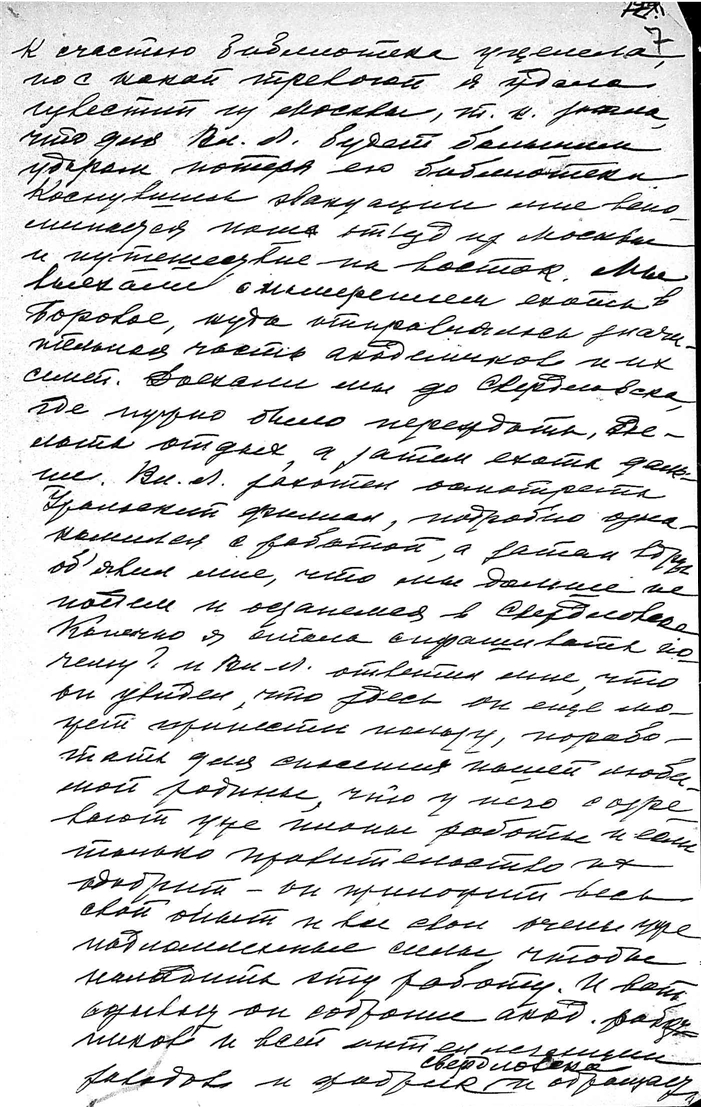 7
К счастью библиотека уцелела,
но с какой тревогой я ждала
известий из Москвы, т. к. знала,
что для Вл. Л. будет большим
ударом потеря его библиотеки
Коснувшись эвакуации мне вспо-
минается наш отъезд из Москвы
и путешествие на восток. Мы
выехали с намерением ехать в
Боровое, куда отправлялась значи-
тельная часть академиков и их
семей. Доехали мы до Свердловска,
где нужно было переждать, сде-
лать отдых, а затем ехать даль-
ше. Вл. Л. захотел осмотреть
Уральский филиал, подробно озна-
комился с работой, а затем вдруг
об'явил мне, что мы дальше не
поедем и останемся в Свердловске
Конечно я стала спрашивать по-
чему? и Вл. Л. ответил мне, что
он увидел, что здесь он еще мо-
жет принести пользу, порабо-
тать для спасения нашей люби-
мой родины, что у него созре-
вают уже планы работы и если
только правительство их
одобрит – он приложит весь
свой опыт и все свои очень уже
надломленные силы, чтобы
наладить эту работу. И вот
созывает он собрание акад. работ-
ников и всей интеллигенции
Свердловска
заводов и фабрик и обращает